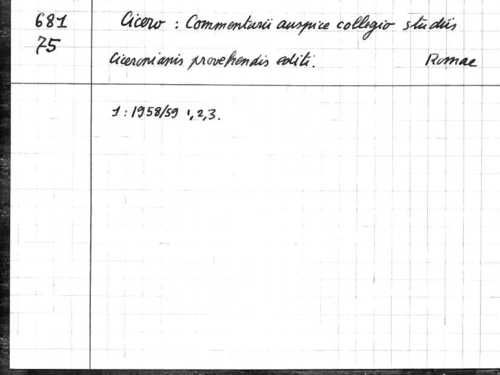 681 Cicero : Commentarii auspice collegio studiis
75 Ciceronianis provehendis editi. Romae
1 : 1958/59 1,2,3.